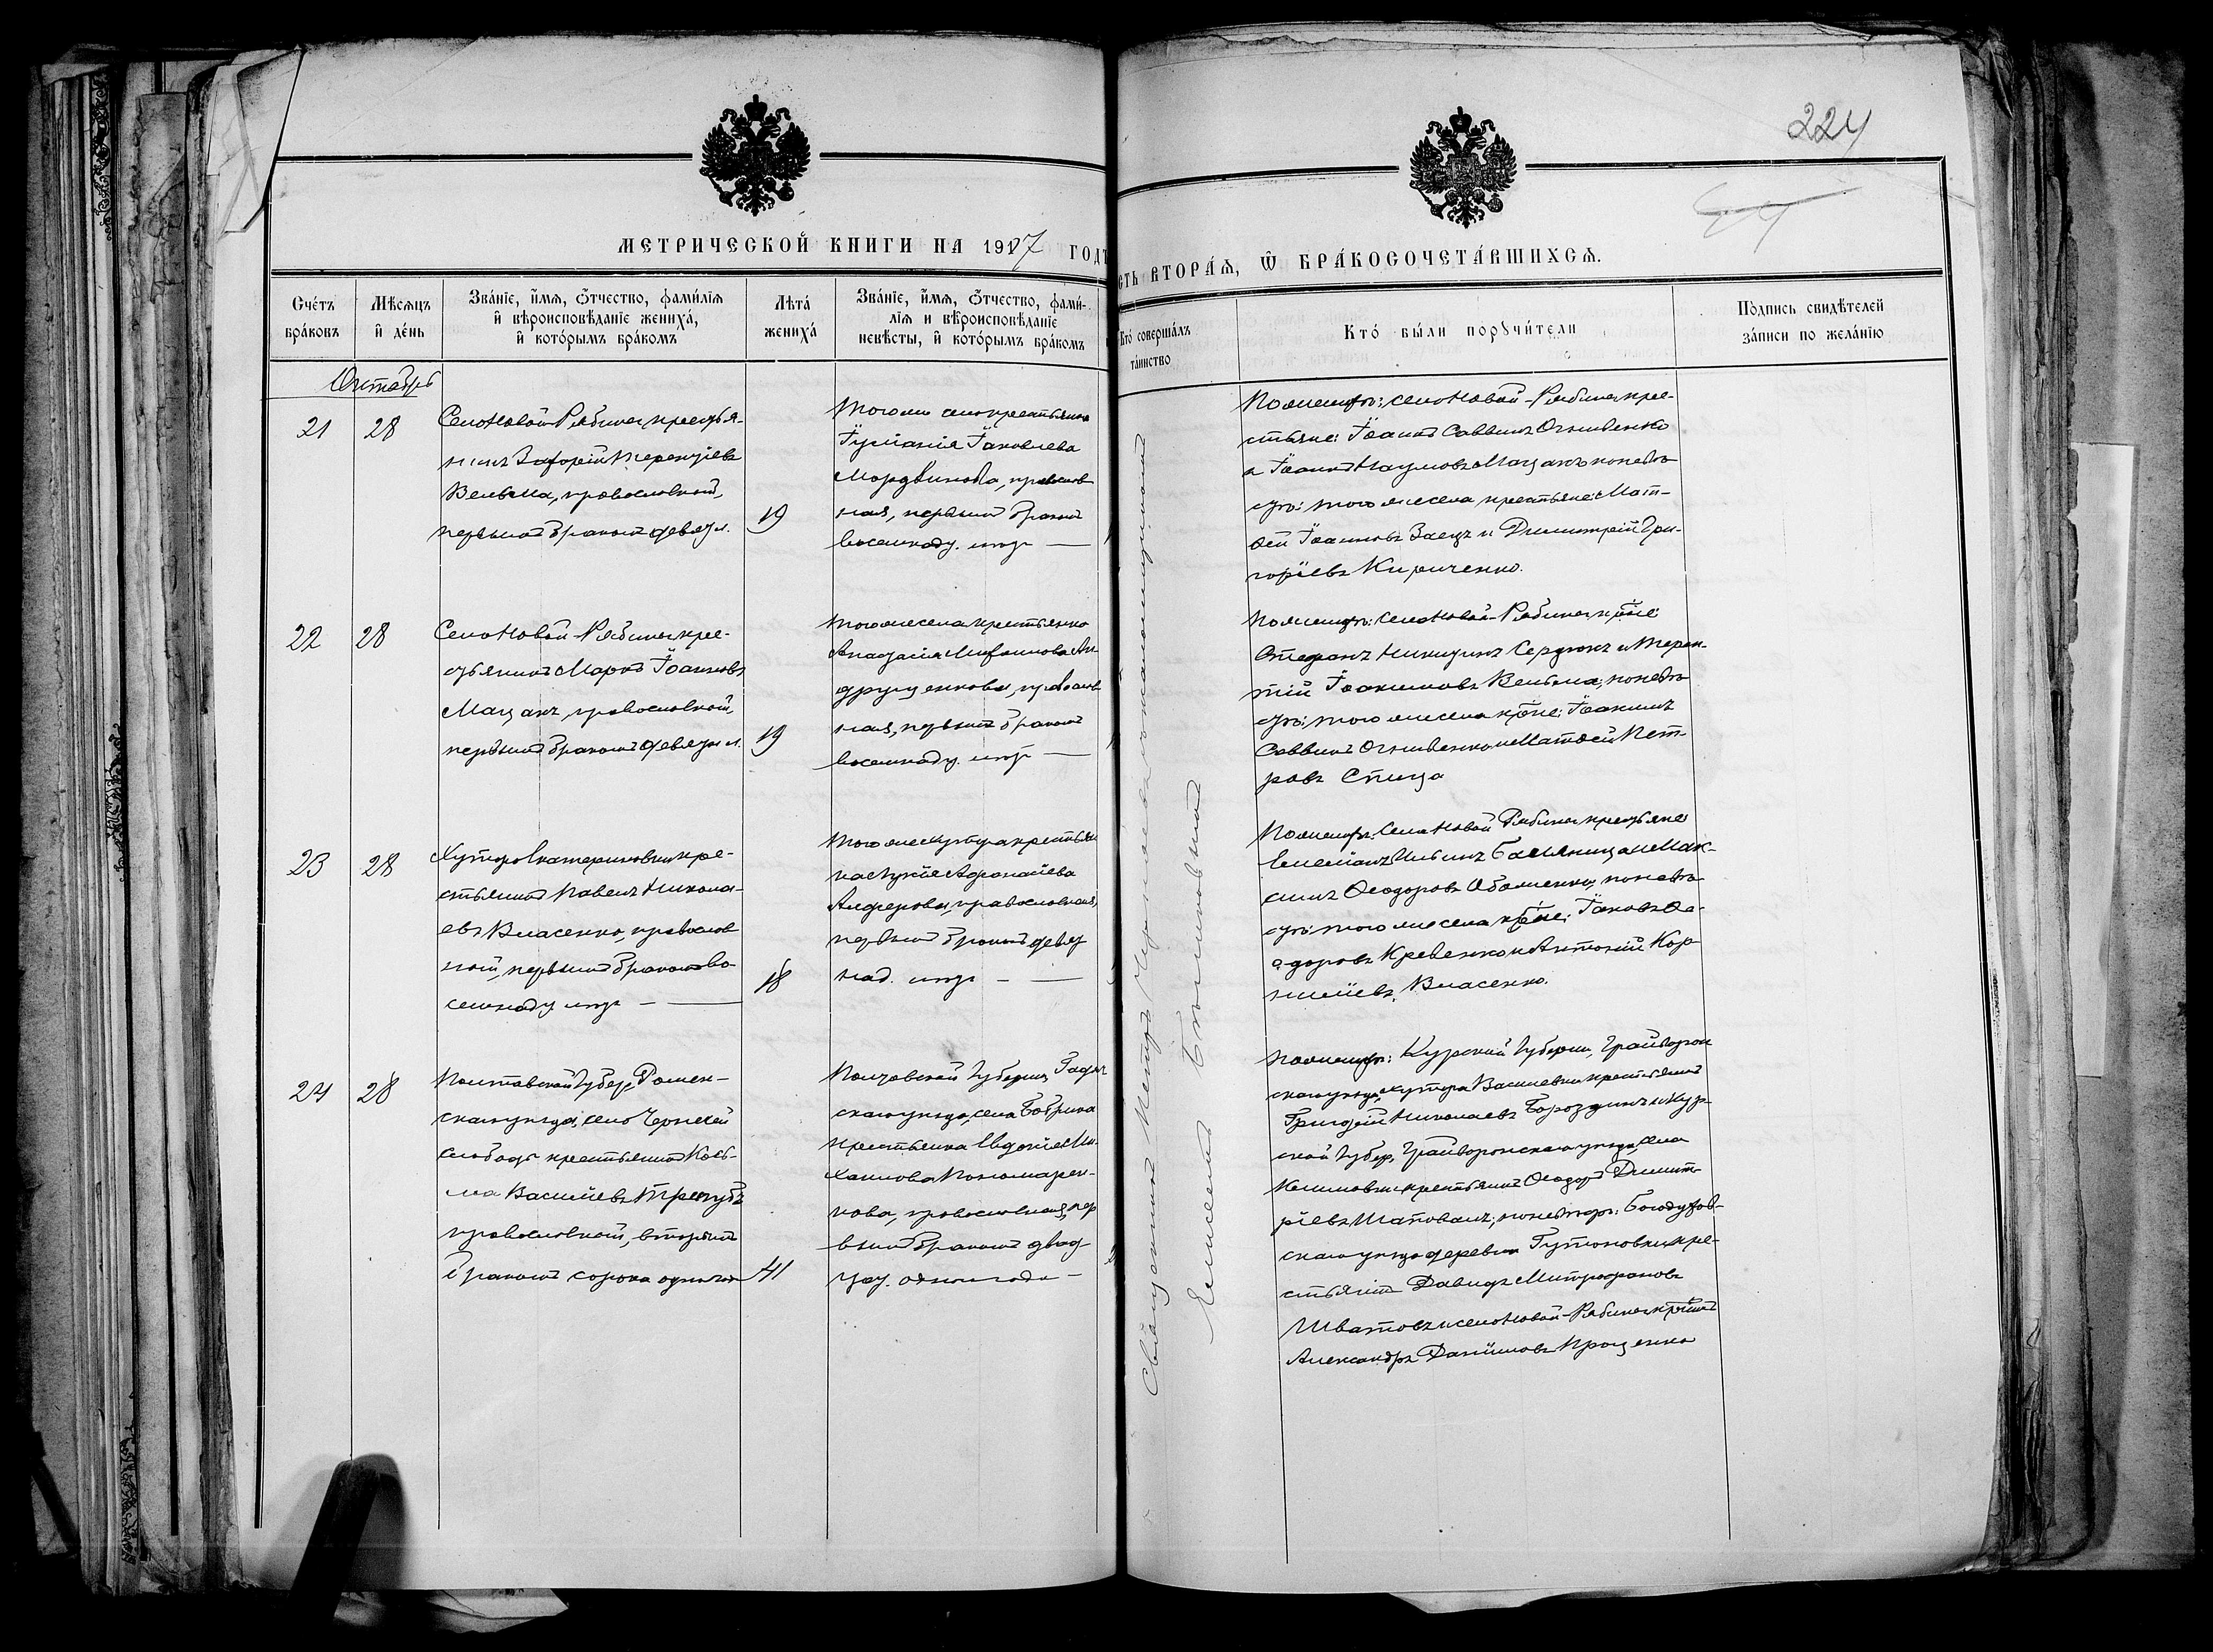 224
МЕТРИЧЕСКОЙ КНИГИ НА 1917 ГОДЪ
СТЬ ВТОРА́Ѧ, Ѿ БРА́КОСОЧЕТА́ВШИХСѦ.
Сче́тъ бра́ковъ
Мѣ́сѧцъ и҆ де́нь
Зва́нїе, и҆́мѧ, ѻ҆́тчество, фами́лїѧ
и҆ вѣроисповѣ́данїе жениха́,
и҆ кото́рымъ бра́комъ
Лѣта́ жениха́
Зва́нїе, и҆́мѧ, ѻ҆́тчество, фами́-
лїѧ и вѣроисповѣ́данїе
невѣ́сты, и҆ кото́рымъ бра́комъ
Кто́ соверша́лъ
та́инство
Кто́ бы́ли порꙋчи́тели
По́дпись свидѣ́телей
за́писи по жела́нїю
Октябрь
21
28
Села Новой-Рябины крестья-
нинъ Захорій Терентіевъ
Вельма, православной,
первымъ бракомъ девятн.
19
Того же села крестьянка
Іуліанія Іаковлева
Мордвинова, православ
ная, первымъ бракомъ
восемнадц. лѣтъ
По женихѣ: села Новой-Рябины кре-
стьяне: Іоаннъ Саввинъ Огніенко
и Іоаннъ Наумовъ Мацакъ по невѣ
стѣ: того же села крестьяне: Мат-
ѳей Іоанновъ Заецъ и Димитрій Гри-
горіевъ Кириченко.
22
28
Села Новой-Рябины кре-
стьянинъ Маркъ Іоанновъ
Мацакъ, православной,
первымъ бракомъ девятн.
19
Того же села крестьянка
Анастасія Михаилова Ан-
друщенкова, православ
ная, первымъ бракомъ
восемнадц. лѣтъ
По женихѣ: села Новой-Рябины кр-не:
Стефанъ Никитинъ Сердюкъ и Терен-
тій Іоакимовъ Вельма; по невѣ
стѣ: того же села кр-не: Іоакимъ
Саввинъ Огніенко и Матѳей Пет-
ровъ Спица
23
28
Хутора Екатериновки кре-
стьянинъ Павелъ Никола-
евъ Власенко, православ
ной, первымъ бракомъ во
семнадц. лѣтъ
18
Того же хутора крестьян
ка Лукія Аѳанасіева
Алферова, православная,
первымъ бракомъ девят
над. лѣтъ
По женихѣ: села Новой Рябины крестьяне
Емеліанъ Ильинъ и Мак-
симъ Ѳеодоровъ; по невѣ
стѣ: того же села кр-не: Іаковъ Ѳе-
одоровъ Кривенко и Антоній Кор-
ниліевъ Власенко.
24
28
Полтавской губер. Ромен-
скаго уѣзда, села Чернечей
слободы крестьянинъ Кось-
ма Василіевъ Трегубъ
православной, вторымъ
бракомъ сорока одного
41
Полтавской губерніи, Гадяч
скаго уѣзда, села Бобрика
крестьянка Евдокія Ми-
хаилова Пономарен-
кова, православная, пер
вымъ бракомъ двад-
цат. одного года
По женихѣ: Курской губерніи, Грайворон
скаго уѣзда, хутора Василевки крестьянинъ
Григорій Николаевъ Бороздинъ и Кур-
ской губер. Грайворонскаго уѣзда, села
крестьянинъ Ѳеодоръ Димит-
ріевъ Шаповалъ; по невѣстѣ: Богодухов-
скаго уѣзда деревни Гутоновки кре-
стьянинъ Давидъ Митрофановъ
Шватовъ и села Новой-Рябины кр-нинъ
Александръ Даніиловъ Проценко
Священникъ Петръ